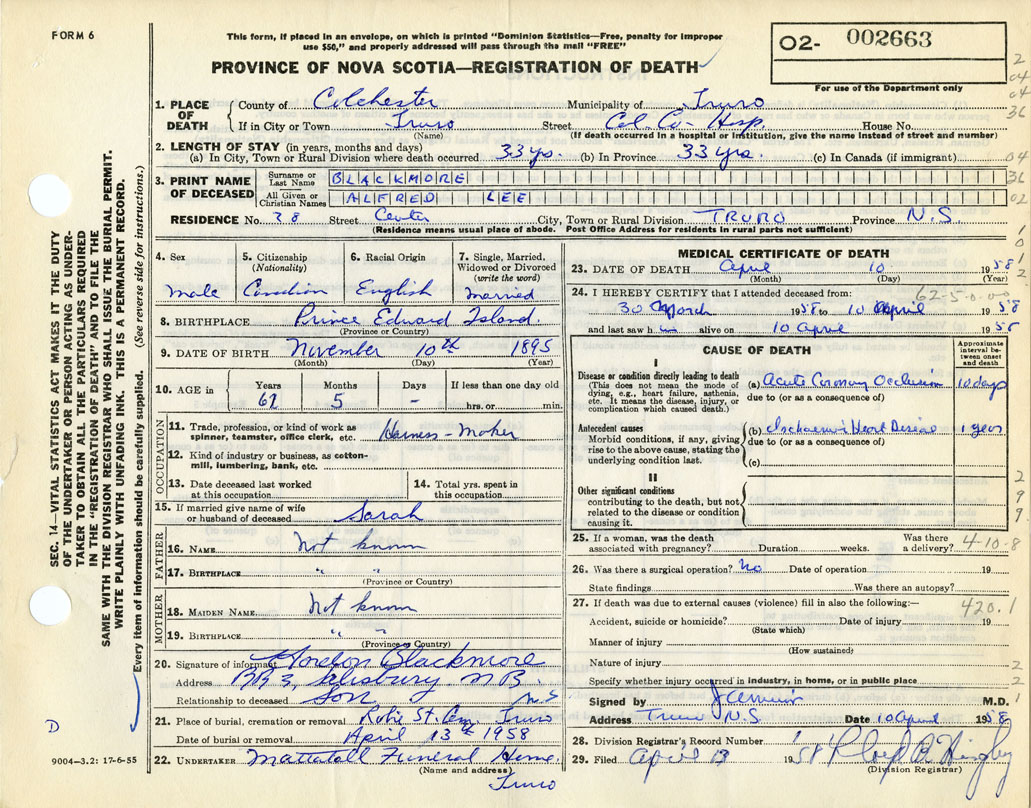 FORM 6
This form, if placed in an envelope, on which is printed "Dominion Statistics—Free, penalty for improper
use $50," and properly addressed will pass through the mail "FREE"
02- 002663
For use of the Department only
PROVINCE OF NOVA SCOTIA—REGISTRATION OF DEATH
1. PLACE OF DEATH County of Colchester Municipality of Truro
If in City or Town Truro Street Col. Co. Hosp. House No.
(Name) (If death occurred in a hospital or institution, give the name instead of street and number)
2. LENGTH OF STAY (in years, months and days)
(a) In City, Town or Rural Division where death occurred 33 yrs. (b) In Province 33 yrs. (c) In Canada (if immigrant)
3. PRINT NAME OF DECEASED
Surname or Last Name BLACKMORE
All Given or Christian Names ALFRED LEE
RESIDENCE No. 38 Street Center City, Town or Rural Division TRURO Province N.S.
(Residence means usual place of abode. Post Office Address for residents in rural parts not sufficient)
4. Sex
male
5. Citizenship (Nationality)
Canadian
6. Racial Origin
English
7. Single, Married, Widowed or Divorced (write the word)
Married
8. BIRTHPLACE Prince Edward Island.
(Province or Country)
9. DATE OF BIRTH November 10th 1895
(Month) (Day) (Year)
10. AGE in Years Months Days If less than one day old
62 5 - hrs. or min.
OCCUPATION
11. Trade, profession, or kind of work as spinner, teamster, office clerk, etc. Harness-Maker
12. Kind of industry or business, as cotton-mill, lumbering, bank, etc.
13. Date deceased last worked at this occupation
14. Total yrs. spent in this occupation
15. If married give name of wife or husband of deceased Sarah
FATHER
16. NAME Not known
17. BIRTHPLACE " "
(Province or Country)
MOTHER
18. MAIDEN NAME Not known
19. BIRTHPLACE " "
(Province or Country)
20. Signature of informant Gordon Blackmore
Address RR3, Salisbury, N.B.
Relationship to deceased Son
N.S
21. Place of burial, cremation or removal Robie St. Cem. Truro
Date of burial or removal April 13th 1958
22. UNDERTAKER Mattatall Funeral Home.
(Name and address)
Truro
MEDICAL CERTIFICATE OF DEATH
23. DATE OF DEATH April 10 1958
(Month) (Day) (Year)
24. I HEREBY CERTIFY that I attended deceased from:
62-5-0-00
30 March 1958 to 10 April 1958
and last saw him alive on 10 April 1958
CAUSE OF DEATH
Approximate interval between onset and death
I
Disease or condition directly leading to death
(This does not mean the mode of dying, e.g., heart failure, asthenia, etc. It means the disease, injury, or complication which caused death.)
(a) Acute Coronary Occlusion 10 days
due to (or as a consequence of)
Antecedent causes
Morbid conditions, if any, giving rise to the above cause, stating the underlying condition last.
(b) Ischaemic Heart Disease 1 year
due to (or as a consequence of)
(c)
II
Other significant conditions
contributing to the death, but not related to the disease or condition causing it.
25. If a woman, was the death associated with pregnancy? Duration weeks. Was there a delivery?
4-10-8
26. Was there a surgical operation? No Date of operation 19
State findings Was there an autopsy?
27. If death was due to external causes (violence) fill in also the following:—
420.1
Accident, suicide or homicide? Date of injury 19
(State which)
Manner of injury
(How sustained)
Nature of injury
Specify whether injury occurred in industry, in home, or in public place
Signed by M.D.
Address Truro N.S. Date 10 April 1958
28. Division Registrar's Record Number
29. Filed April 13 1958
(Division Registrar)
SEC. 14—VITAL STATISTICS ACT MAKES IT THE DUTY
OF THE UNDERTAKER OR PERSON ACTING AS UNDER-
TAKER TO OBTAIN ALL THE PARTICULARS REQUIRED
IN THE "REGISTRATION OF DEATH" AND TO FILE THE
SAME WITH THE DIVISION REGISTRAR WHO SHALL ISSUE THE BURIAL PERMIT.
WRITE PLAINLY WITH UNFADING INK. THIS IS A PERMANENT RECORD.
Every item of information should be carefully supplied. (See reverse side for instructions.)
D
9004—3.2: 17-6-55
2
04
04
36
04
36
02
1
0
1
2
2
9
9
2
2
1